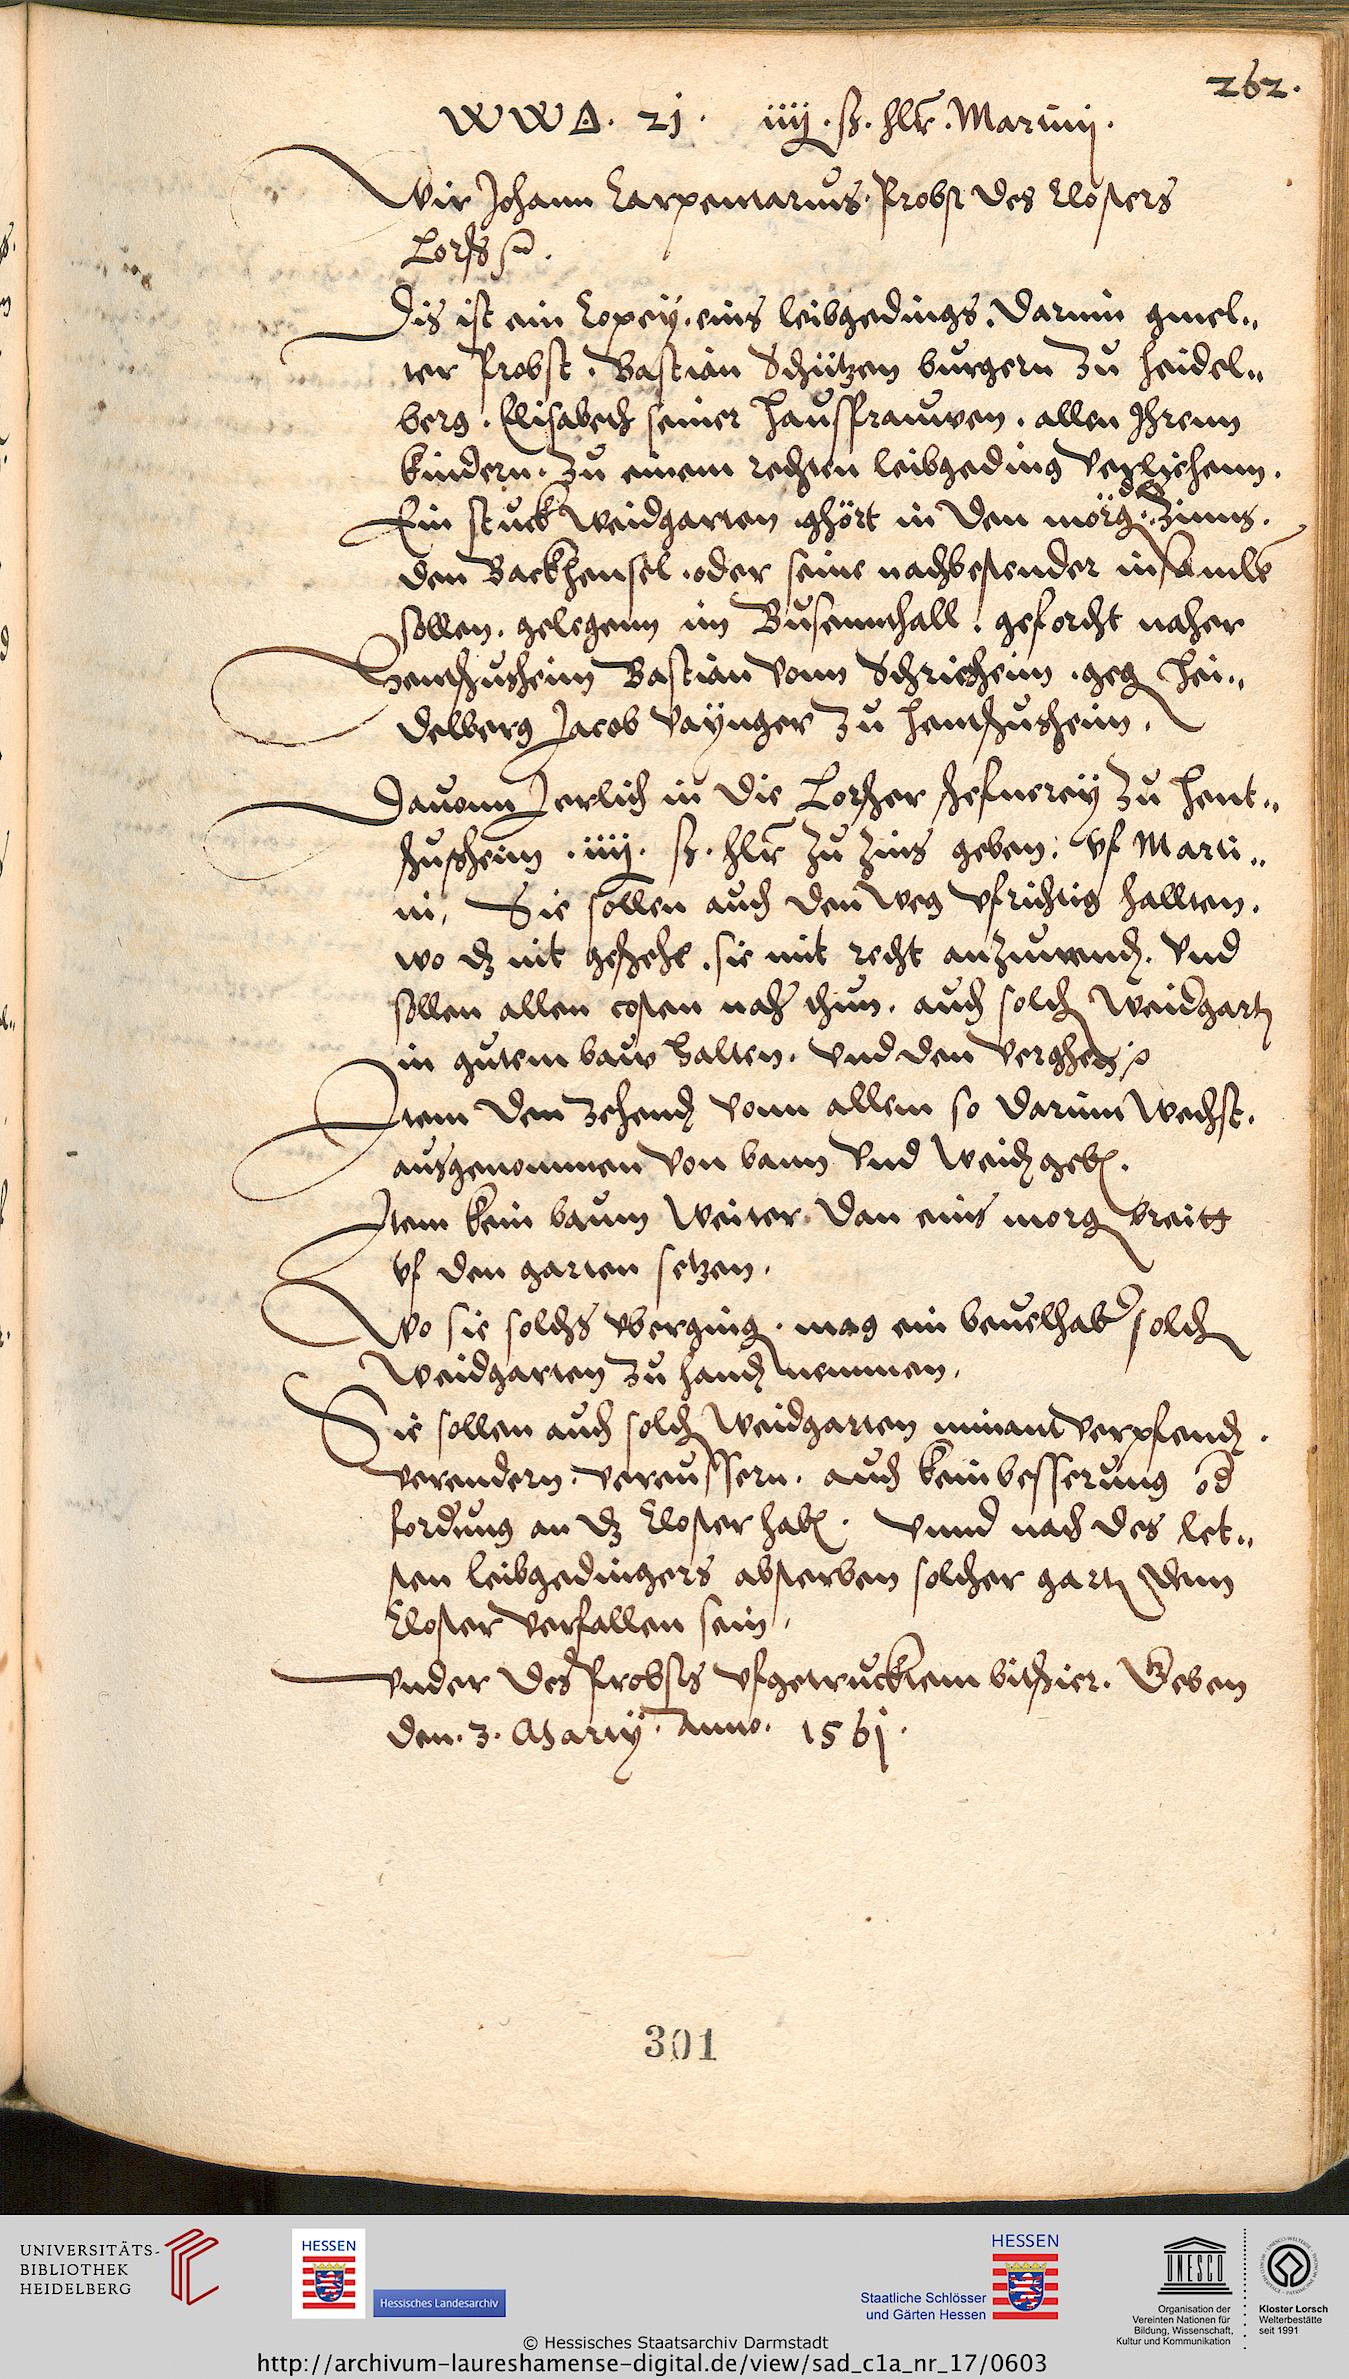 262.
W W Δ. 21. iiij. ß. hlr. Martinij.
Wir Johann Carpentarius. Probst des Closters
Lorsch
Dis ist ein Copey. eins leibgedings. Darinn gmel„
ter Probst. Bastian Schützen burgern zu Heidel„
berg. Elisabeth seiner haussfrauwen. allen Ihrenn
kindern. zu einem rechten leibgeding verlichenn.
Ein stuck Weidgarten ghört in den morg. Zinns.
den Backhensel. oder seine nachbestender
sollen. gelegenn im Busennthall. geforcht naher
Hentschusheim Bastian vonn Schriesheim. geg Hei„
delberg Jacob Vaÿnger zu Hentschusheim.
Dauonn Jerlich in die Lorscher schefnereÿ zu Hent„
schusheim. iiij. ß. hlr zu Zins geben. vf Marti„
ni, Sie sollen auch den weg vfrichtig hallten.
wo dz nit geschehe. sie mit recht anzuwend. Vnd
sollen allen costen nach thun. auch solch Weidgart
in gutem bauw halten. vnd den
Item den zehend vonn allem so darinn Wechst.
ausgenommen von bann vnd Weid geb.
Item kein baum Weiter. dan eins morg breitt
vf den garten setzen.
Wo sie solchs vberging. mag ein beuelhaber solch
Weidgarten zu hand nemmen.
Sie sollen auch solch Weidgarten nimant verpfend.
verendern. vereussern. auch kein besserung od
fordung an dz Closter hab. Vnnd nach des let„
sten leibgedingers absterben solcher gart dem
Closter verfallen sein.
Vnder des Probsts vfgetrucktem bitschier. Geben
den. 3. Martÿ. Anno. 1561.
301
UNIVERSITÄTS-
BIBLIOTHEK
HEIDELBERG
HESSEN
Hessisches Landesarchiv
HESSEN
Staatliche Schlösser
und Gärten Hessen
UNESCO
Organisation der
Vereinten Nationen für
Bildung, Wissenschaft,
Kultur und Kommunikation
Kloster Lorsch
Welterbestätte
seit 1991
© Hessisches Staatsarchiv Darmstadt
http://archivum-laureshamense-digital.de/view/sad_c1a_nr_17/0603